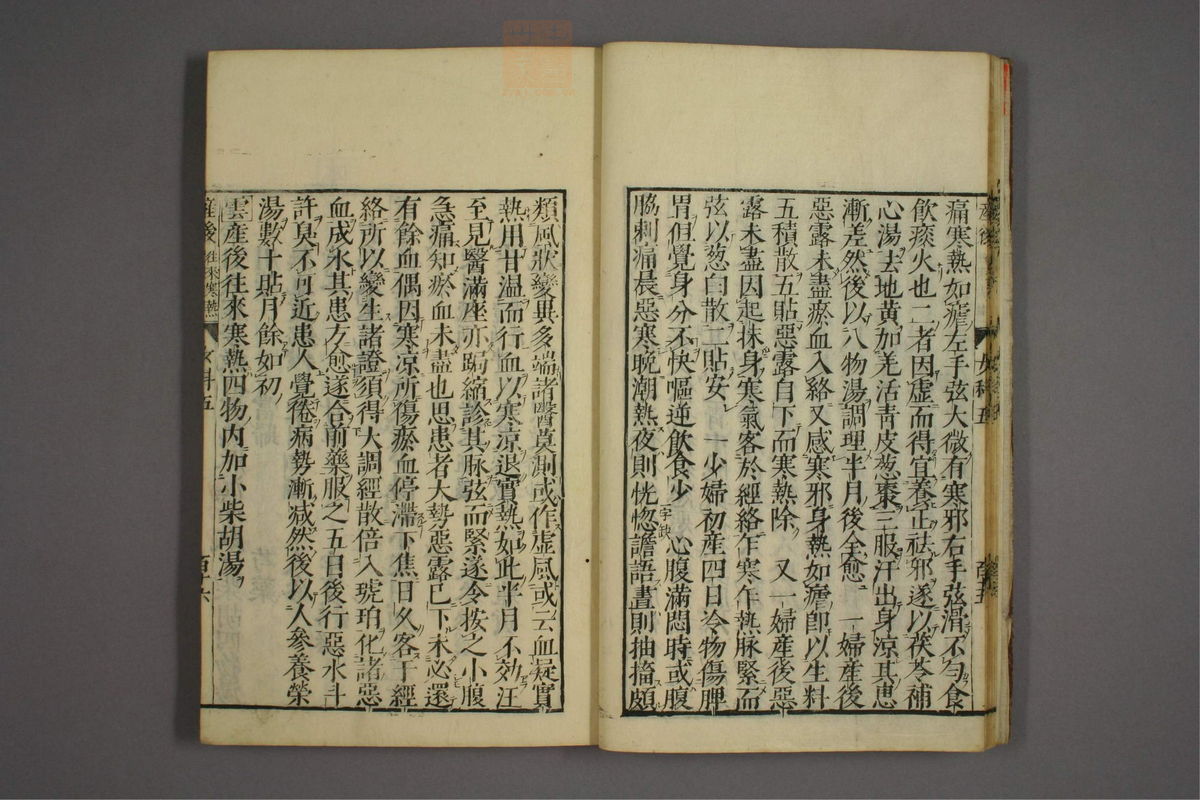 産後
女科五
百五
痛寒熱如瘧左手弦大微有寒邪右手弦滑不勻食
飲痰火也二者因虛而得宜養正祛邪遂以茯苓補
心湯去地黃加羌活青皮葱棗三服汗出身涼其患
漸差然後以八物湯調理半月後全愈 一婦産後
惡露未盡瘀血入絡又感寒邪身熱如瘧卽以生料
五積散五貼惡露自下而寒熱除 又一婦産後惡
露未盡因起抹身寒氣客於經絡乍寒乍熱脉緊而
弦以葱白散二貼安 一少婦初産四日冷物傷脾
胃但覺身分不快嘔逆飲食少一字缺心腹滿悶時或腹
脇刺痛晨惡寒晚潮熱夜則恍惚譫語晝則抽搐頗
類風狀變異多端諸醫莫測或作虛風或云血凝實
熱用甘温而行血以寒凉退實熱如此半月不効汪
至見醫滿座亦跼縮診其脉弦而緊遂令按之小腹
急痛知瘀血未盡也思患者大勢惡露已下未必還
有餘血偶因寒凉所傷瘀血停滯下焦日久客于經
絡所以變生諸證須得大調經散倍入琥珀化諸惡
血成水其患方愈遂合前藥服之五日後行惡水斗
許臭不可近患人覺倦病勢漸减然後以人參養榮
湯數十貼月餘如初
雲産後往來寒熱四物内加小柴胡湯
産後往來寒熱
女科五
百六